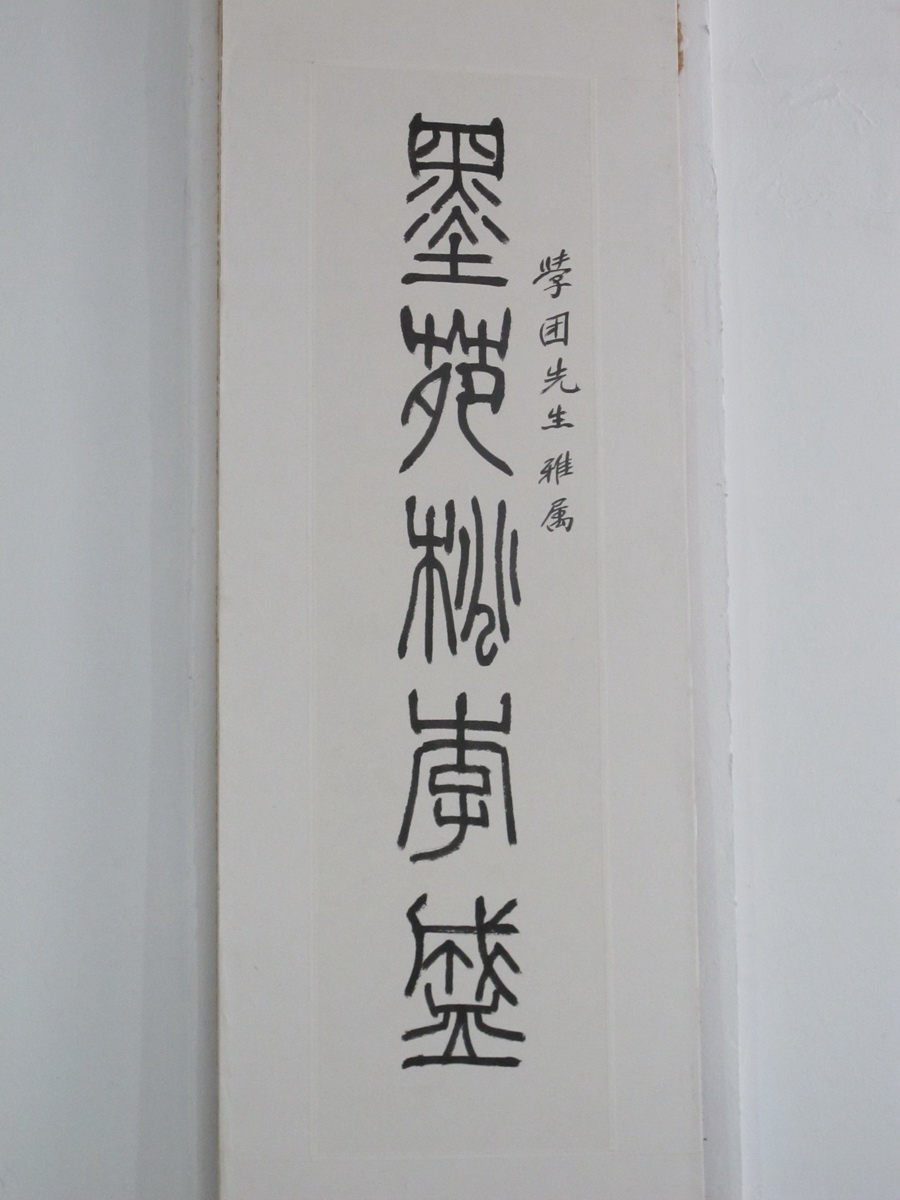 學团先生雅属
墨苑松李盛